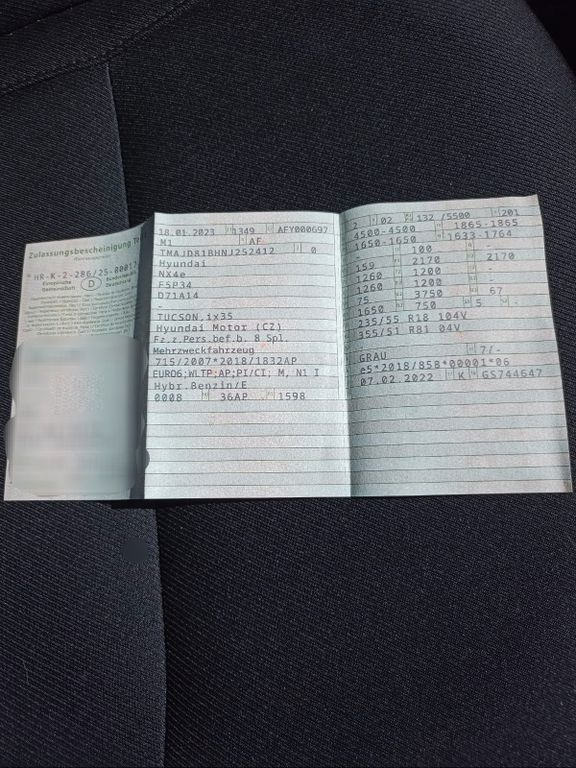 Zulassungsbescheinigung
Europäische
Gemeinschaft
D
Bundesrepublik
Deutschland
18.01.2023 1349 AFY000697
M1 AF
TMAJD81BHNJ252412 0
Hyundai
NX4e
F5P34
D71A14
-
TUCSON,ix35
Hyundai Motor (CZ)
Fz.z.Pers.bef.b. 8 Spl.
Mehrzweckfahrzeug
715/2007*2018/1832AP
EURO6;WLTP;AP;PI/CI; M, N1 I
Hybr.Benzin/E
0008 36AP 1598
2 02 132 /5500 201
4500-4500 1865-1865
1650-1650 1633-1764
100
159 2170 2170
1260 1200 -
1260 1200 -
75 3750 67
1650 750 5 -
235/55 R18 104V
355/51 R81 04V
-
GRAU 7/-
e5*2018/858*00001*06
07.02.2022 K GS744647